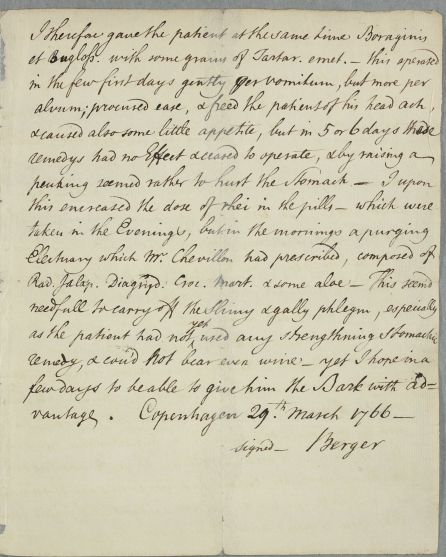 I therefore gave the patient at the same time Boraginis
et Bugloss. with some grains of Tartar. emet. — this operated
in the few first days gently per vomitum, but more per
alvum; procured ease, & freed the patient of his head ach,
& caused also some little appetite, but in 5 or 6 days these
remedys had no Effect & ceased to operate, & by raising a
peuking seemed rather to hurt the Stomach — I upon
this encreased the dose of rhei in the pills — which were
taken in the Evenings, but in the mornings a purging
Electuary which Mr. Chevillon had prescribed, composed of
Rad. Jalap. Diagryd. Croc. Mart. & some aloe — This seemd
needfull to carry off the Slimy & gally phlegm, especially
as the patient had not yet used any strengthning Stomachic
remedy, & could not bear even wine — yet I hope in a
few days to be able to give him the Bark with ad=
vantage. Copenhagen 29th. March 1766 —
signed — Berger